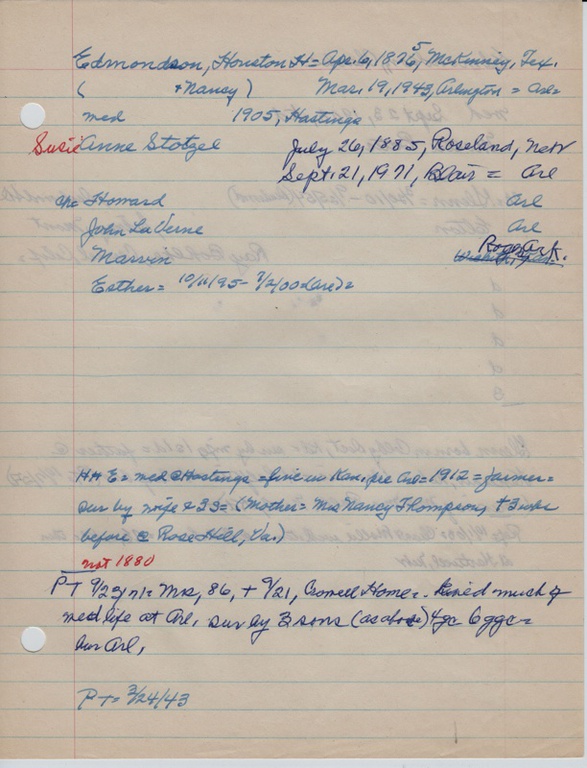 Edmondson, Houston H = Apr. 6, 1876 5, McKinney, Tex.
( + Nancy) Mar. 19, 1943, Arlington = Arl =
med 1905, Hastings
Susie Anne Stotzel July 26, 1885, Roseland, Neb
Sept. 21, 1971, Blair = Arl
ch = Howard Arl
John LaVerne Arl
Marvin Rogers Ark.
Esther = 10/11/95 - 7/2/00 (Arl) =
HHE = med @ Hastings = live in Kan. pre Arl = 1912 = farmer =
sur by wife & 3 S = (Mother = Mrs Nancy Thompson, + 3 wks
before @ Rose Hill, Va.)
not 1880
PT 9/23/71 = Mrs, 86, + 9/21, Crowell Home = lived much of
med life at Arl. sur by 3 sons (as above) 4 gc 6 ggc =
bur Arl.
PT = 3/24/43